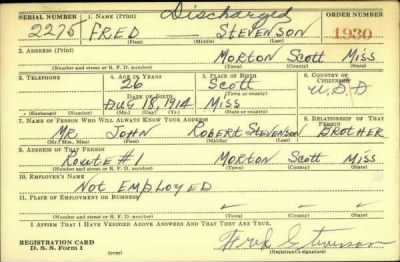 SERIAL NUMBER 1. Name (Print) Discharged ORDER NUMBER
2275 FRED STEVENSON 1930
(First) (Middle) (Last)
2. Address (Print)
Morton Scott Miss
(Number and street or R. F. D. number) (Town) (County) (State)
3. Telephone 4. Age in Years 5. Place of Birth 6. Country of Citizenship
26 Scott
Date of Birth (Town or county) U.S.A
Aug 18, 1914 Miss
(Exchange) (Number) (Mo.) (Day) (Yr.) (State or country)
7. Name of Person Who Will Always Know Your Address 8. Relationship of That Person
Mr. John Robert Stevenson Brother
(Mr., Mrs., Miss) (First) (Middle) (Last)
9. Address of That Person
Route #1 Morton Scott Miss
(Number and street or R. F. D. number) (Town) (County) (State)
10. Employer's Name
Not Employed
11. Place of Employment or Business
(Number and street or R. F. D. number) (Town) (County) (State)
I Affirm That I Have Verified Above Answers and That They Are True.
REGISTRATION CARD
D. S. S. Form 1 (over) Fred Stevenson
(Registrant's signature)